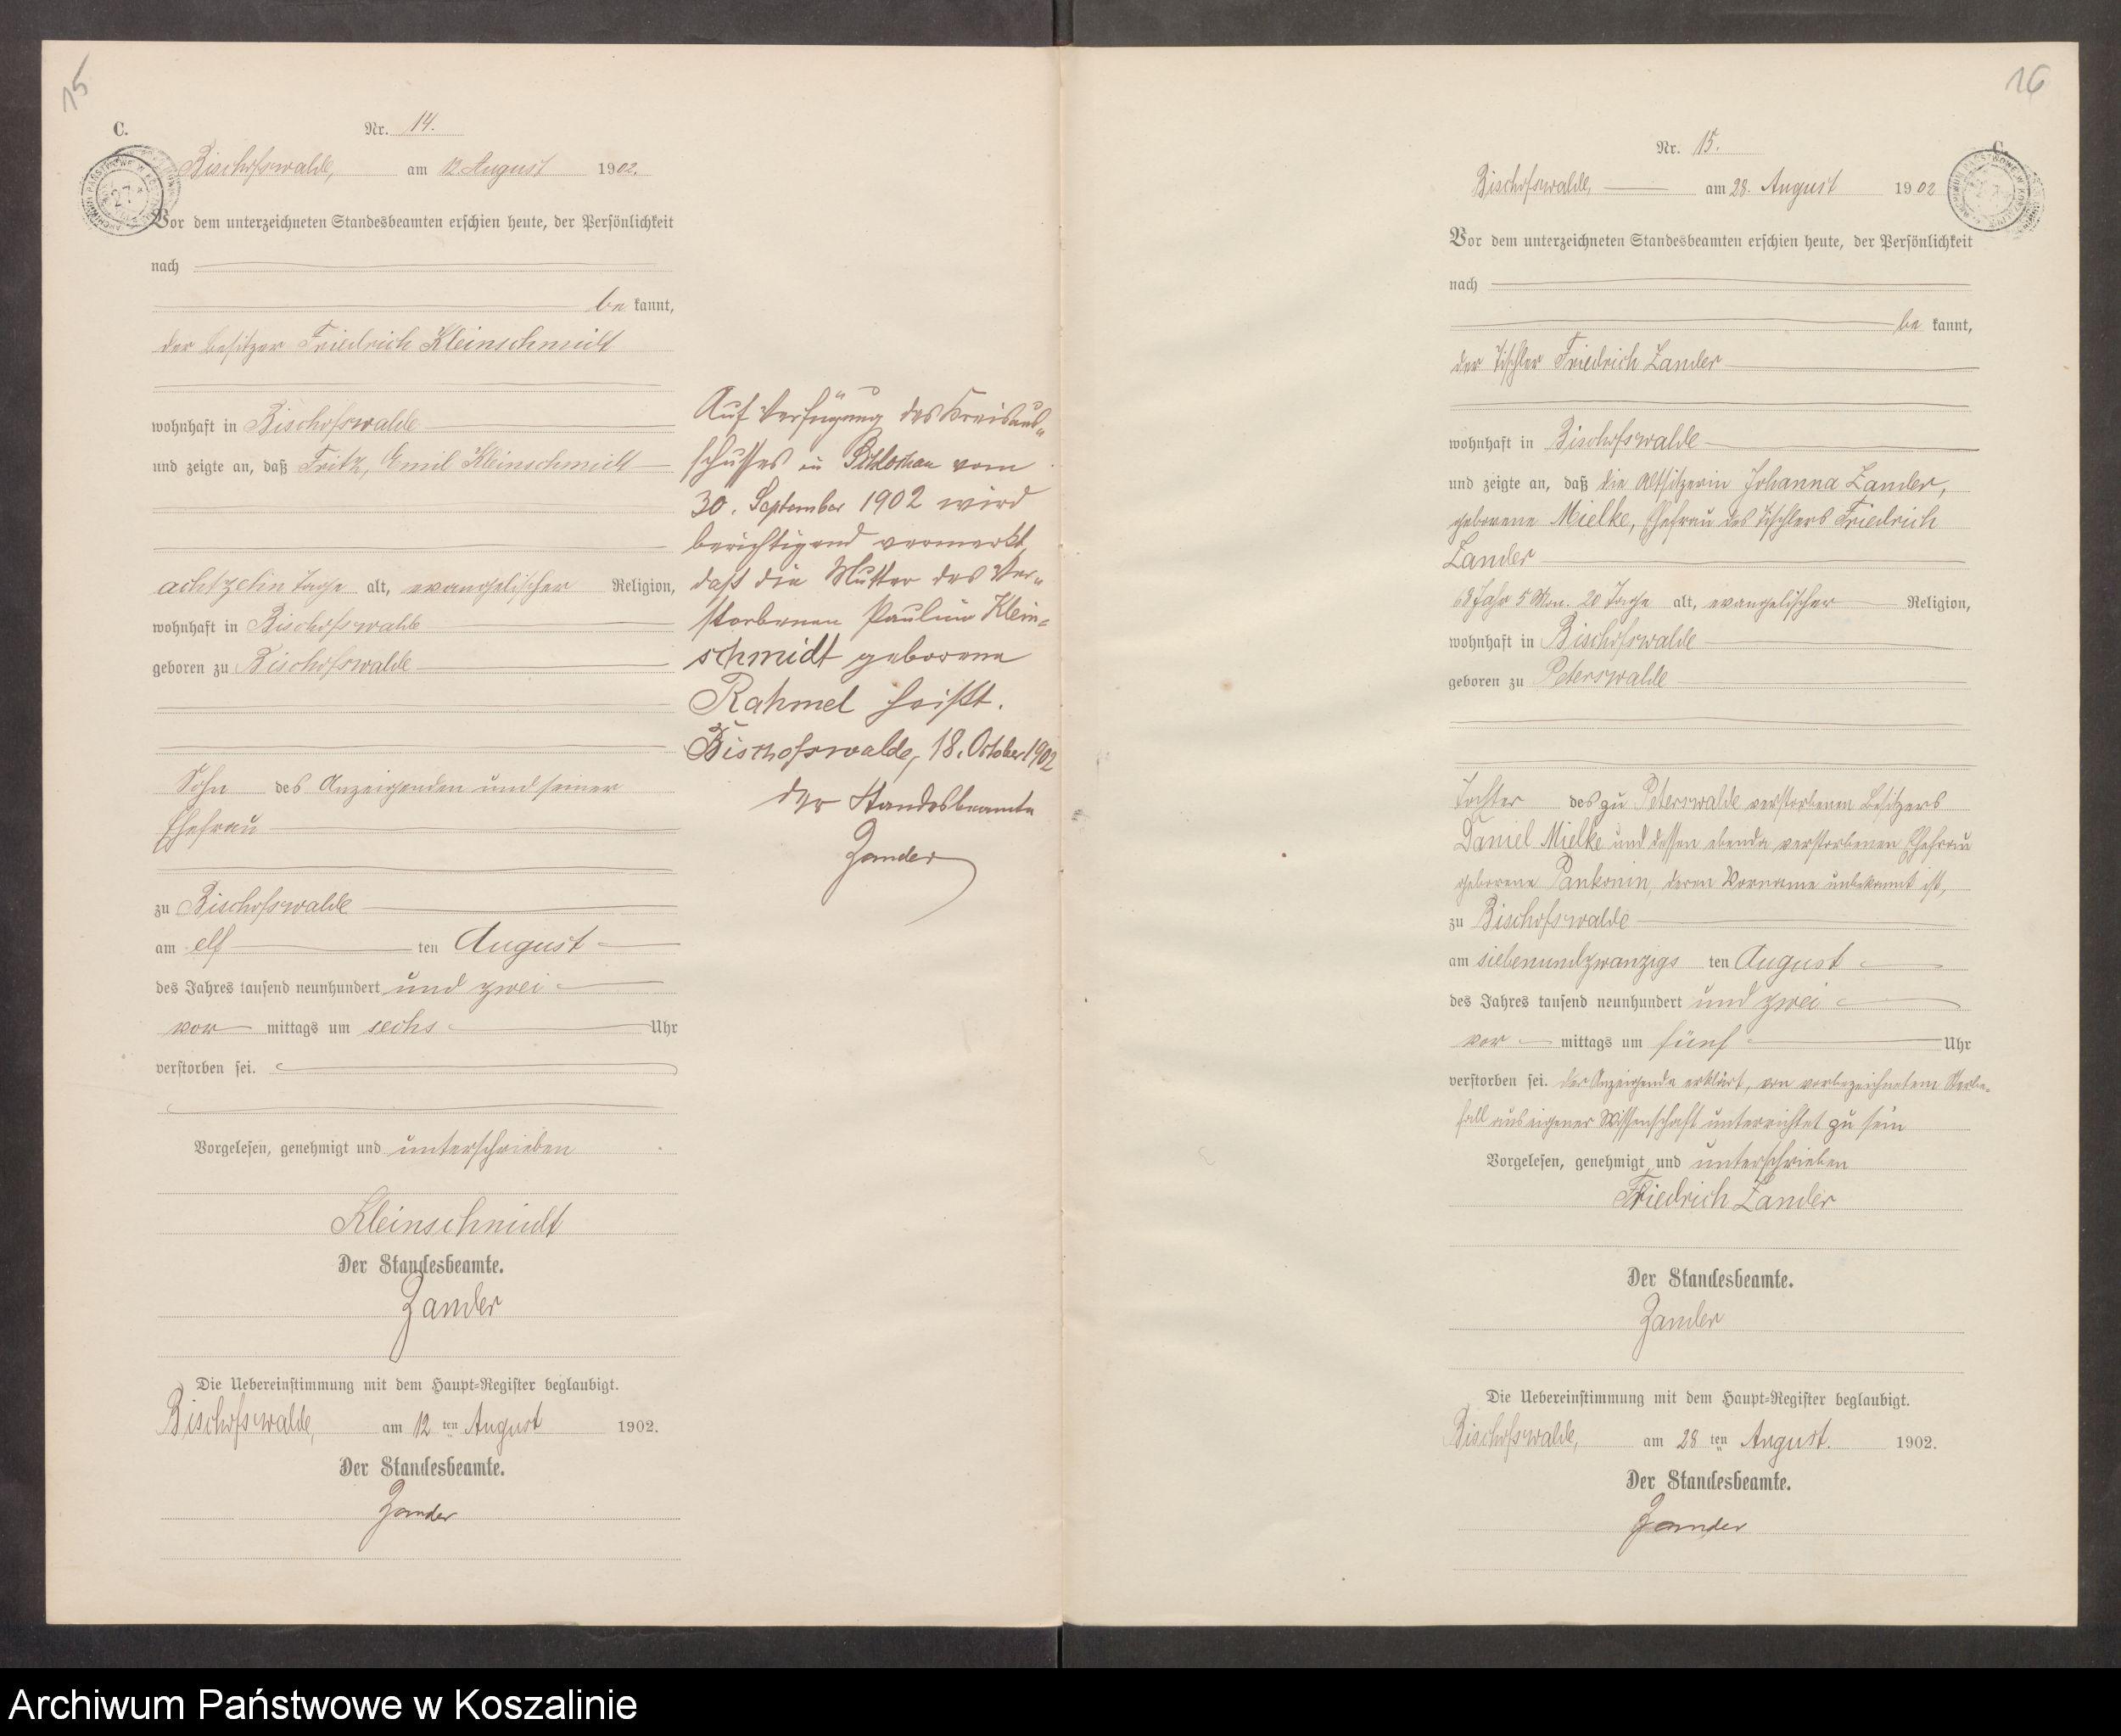 15
C.
Nr. 14.
Bischofswalde, am 12. August 1902.
Vor dem unterzeichneten Standesbeamten erschien heute, der Persönlichkeit
nach
be kannt,
der Besitzer Friedrich Kleinschmidt
wohnhaft in Bischofswalde
und zeigte an, daß Fritz, Emil Kleinschmidt
achtzehn Tage alt, evangelischer Religion,
wohnhaft in Bischofswalde
geboren zu Bischofswalde
Sohn des Anzeigenden und seiner
Ehefrau
zu Bischofswalde
am elf ten August
des Jahres tausend neunhundert und zwei
vor mittags um sechs Uhr
verstorben sei.
Vorgelesen, genehmigt und unterschrieben
Kleinschmidt
Der Standesbeamte.
Zander
Die Uebereinstimmung mit dem Haupt-Register beglaubigt.
Bischofswalde, am 12 ten August 1902.
Der Standesbeamte.
Zander
Auf Verfügung des Kreisaus„
schusses in Schlochau vom
30. September 1902 wird
berichtigend vermerkt,
daß die Mutter des Ver„
storbenen Pauline Klein=
schmidt geborene
Rahmel heißt.
Bischofswalde, 18. October 1902
Der Standesbeamte
Zander
16
C.
Nr. 15.
Bischofswalde, am 28. August 1902
Vor dem unterzeichneten Standesbeamten erschien heute, der Persönlichkeit
nach
be kannt,
der Tischler Friedrich Zander
wohnhaft in Bischofswalde
und zeigte an, daß die Altsitzerin Johanna Zander,
geborene Mielke, Ehefrau des Tischlers Friedrich
Zander
68 Jahr 5 Mon. 20 Tage alt, evangelischer Religion,
wohnhaft in Bischofswalde
geboren zu Peterswalde
Tochter des zu Peterswalde verstorbenen Besitzers
Daniel Mielke und dessen ebenda verstorbenen Ehefrau
geborene Pankonin, deren Vorname unbekannt ist,
zu Bischofswalde
am siebenundzwanzigs ten August
des Jahres tausend neunhundert und zwei
vor mittags um fünf Uhr
verstorben sei. Der Anzeigende erklärt, von vorbezeichnetem Sterbe=
fall aus eigener Wissenschaft unterrichtet zu sein
Vorgelesen, genehmigt und unterschrieben
Friedrich Zander
Der Standesbeamte.
Zander
Die Uebereinstimmung mit dem Haupt-Register beglaubigt.
Bischofswalde, am 28 ten August. 1902.
Der Standesbeamte.
Zander
Archiwum Państwowe w Koszalinie